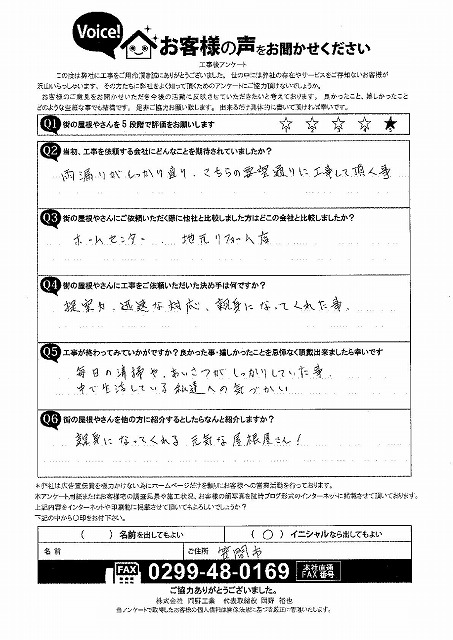 Voice!
お客様の声をお聞かせください
工事後アンケート
この度は弊社に工事をご用命頂き誠にありがとうございました。世の中には弊社の存在やサービスをご存知ないお客様が
沢山いらっしゃいます。その方たちに弊社をよく知って頂くためのアンケートにご協力頂けないでしょうか。
お客様のご意見をお聞かせいただき今後の活動に反映させていただきたいと考えております。良かったこと、嬉しかったこと
どのような些細な事でも結構です。是非ご協力お願い致します。出来るだけ具体的に書いて頂ければ幸いです。
Q1 街の屋根やさんを5段階で評価をお願いします ☆ ☆ ☆ ☆ ★
Q2 当初、工事を依頼する会社にどんなことを期待されていましたか?
雨漏りがしっかり直り、こちらの要望通りに工事して頂く事
Q3 街の屋根やさんにご依頼いただく際に他社と比較しました方はどこの会社と比較しましたか?
ホームセンター 地元リフォーム店
Q4 街の屋根やさんに工事をご依頼いただいた決め手は何ですか?
提案力、迅速な対応、親身になってくれた事。
Q5 工事が終わってみていかがですか?良かった事・嬉しかったことを忌憚なく頂戴出来ましたら幸いです
毎日の清掃や、あいさつがしっかりしていた事。
中で生活している私達への気づかい
Q6 街の屋根やさんを他の方に紹介するとしたらなんと紹介しますか?
親身になってくれる元気な屋根屋さん!
*弊社は広告宣伝費を極力かけない為にホームページだけを頼りにお客様への営業活動を行っております。
本アンケート用紙またはお客様宅の調査風景や施工状況、お客様の顔写真を随時ブログ形式のインターネットに掲載させて頂いております。
上記内容をインターネットや印刷物に掲載させて頂いてもよろしいでしょうか?
下記の中から〇印をお付下さい。
( )名前を出してもよい (○)イニシャルなら出してもよい
名前 ご住所 笠間市
FAX 0299-48-0169 本社直通 FAX番号
ご協力ありがとうございました。
株式会社 岡野工業 代表取締役 岡野 裕也
当アンケートで取得したお客様の個人情報は関係法規に基づき厳正に管理いたします。